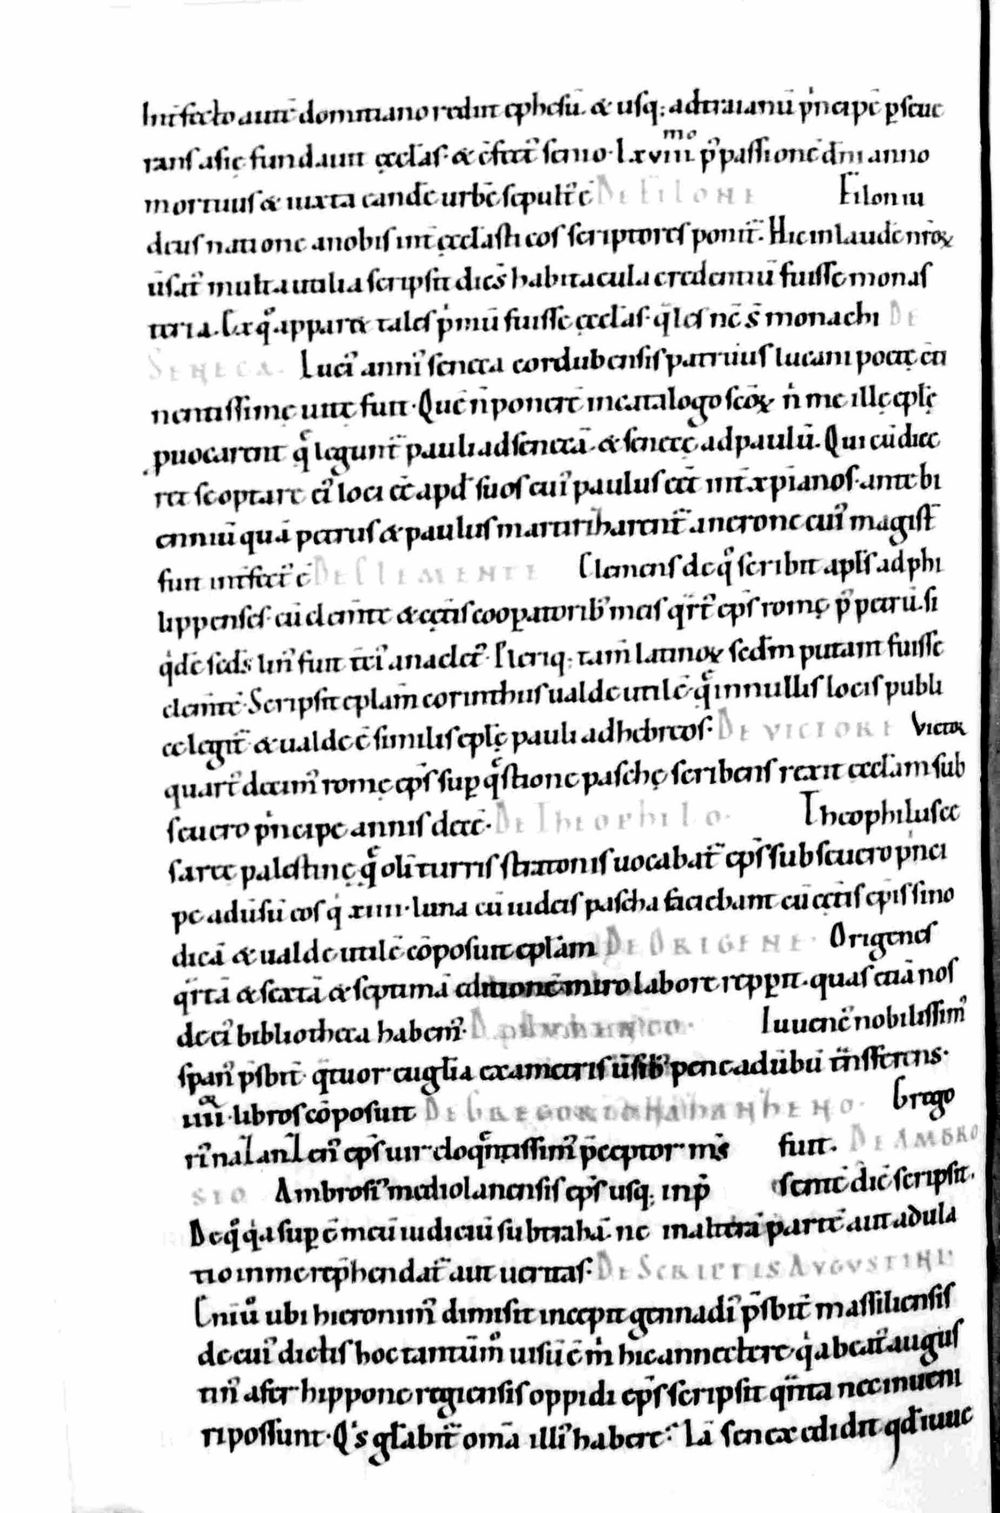 Int̄fecto aut̄e domitiano redut ephesū. & usq; ad traianū p̓ncipē p̱seue
rans asie̜ fundauit e̜cclas̄· & c̄fect᷒ senio· lxviii mo p᷒ passionē dn̄i anno
mortuus & iuxta eandē urbē sepult᷒ ē DE FILONE Filon iu
deus natione a nobis int̄ e̜cclasticos scriptores ponit᷑. Hic in laudē nr̄oꝝ
ūsat᷒ multa utilia scripsit dicēs habitacula credentiū fuisse monas
teria. Ex q̊ apparet tales p̓mū fuisse e̜cclas̄· q̄les nc̄ s̄ monachi DE
SENECA. Luci᷒ anne᷒ seneca cordubensis patruus lucani poete̜ cn̄
nentissime̜ uite̜ fuit· Quē n̄ ponerē in catalogo sc̄oꝝ n̓ me ille̜ eplē̜
puocarent q̄ legunt᷑ pauli ad senecā· & senece̜ ad paulū. Qui cū dice
ret se optare ei᷒ loci ēē apd̄ suos cui᷒ paulus eēt int̄ xp̄ianos· ante bi
enniū quā petrus & paulus martiriharent᷑ a nerone cui᷒ magist̄
fuit int̄fect᷒ ē DE CLEMENTE Clemens de q̊ scribit apl̄s ad phi
lippenses· cū clem̄te & cet̄is cooꝑatorib᷒ meis q̄rt᷒ ep̄s rome̜ p᷒ petrū· si
q̓dē seds̄ lin᷒ fuit tc̄i᷒ anaclet᷒· Pleriq; tam̄ latinoꝝ sedm̄ putant fuisse
clem̄tē· Scripsit epl̄am corinthiis ualde utilē· q̄ in nullis locis publi
ce legit᷑ & ualde ē similis eplē̜ pauli ad hebreos· DE VICTORE Victor
quart᷒ decim᷒ rome̜ ep̄s suꝑ q̄stione pasche̜ scribens rexit e̜cclam̄ sub
seuero p̓ncipe annis decē· DE THEOPHILO. Theophilus ce
saree palestine̜ q̄ oli᷒ turris stratonis uocabat᷑ ep̄s sub seuero p̓nci
pe adūsū eos q̓ xiiii· luna cū iudeis pascha faciebant cū cet̄is ep̄is sino
dicā & ualde utilē cōposuit epl̄am DE ORIGENE· Origenes
q̄rtā & sextā & septimā editionē miro labore repꝑit· quas etiā nos
de ei᷒ bibliotheca habem᷒· Iuuenc᷒ nobilissim᷒
span᷒ pr̄sbit̄· q̄tuor euglia examet̄ris ūsib᷒ pene adūbū tn̄sferens·
iiii· libros cōposuit DE GREGORIO NAZANZENO· Grego
ri᷒ nazanzen᷒ ep̄s uir eloq̄ntissim᷒ p̄ceptor m̄s fuit. DE AMBRO
SIO Ambrosi᷒ mediolanensis ep̄s usq; in p̄sentē diē scripsit·
De q̊ q̓a suꝑ ē meū iudiciū subtrahā· ne in alterā partē aut adula
tio in me rep̄hendat᷑ aut ueritas· DE SCRIPTIS AVGVSTINI
Eniū ubi hieronim᷒ dimisit incepit gennadi᷒ pr̄sbit̄ massiliensis
de cui᷒ dictis hoc tantūm̊ uisū ē m̓ hic annectere· q̓a beat᷒ augus
tin᷒ afer· hippone regiensis oppidi ep̄s scripsit q̄nta nec inueni
ri possunt· Q̓s glābit᷑ om̄a illi᷒ habere᷒ Iā senex edidit qd̄ iuue